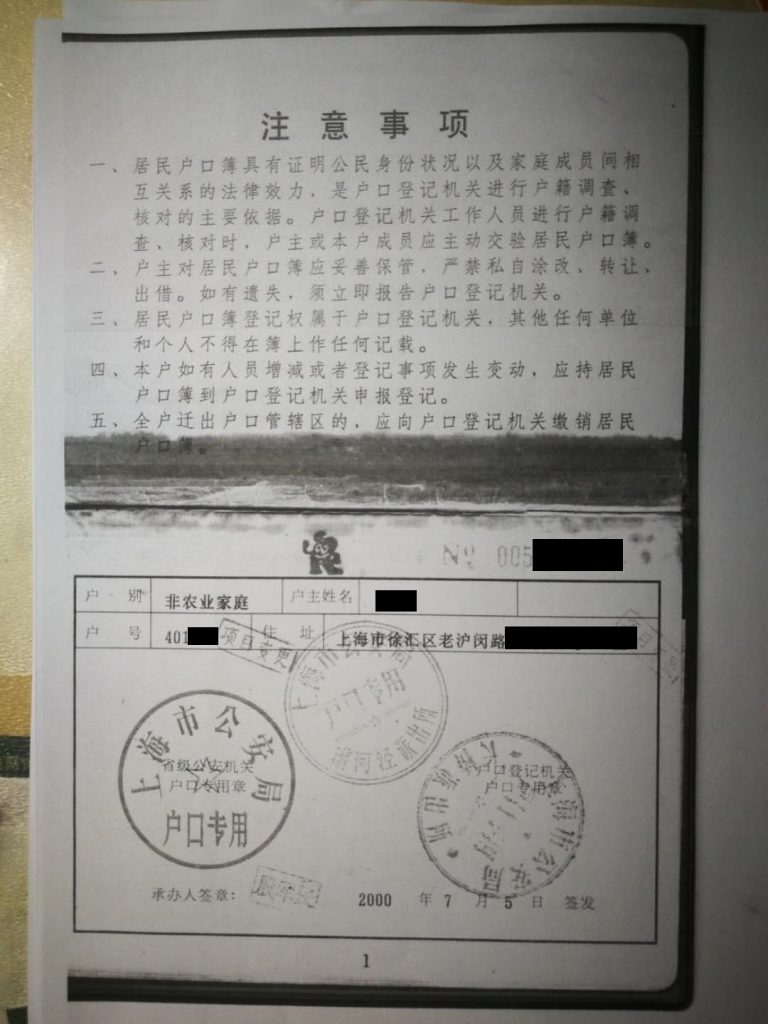 注意事项
一、居民户口簿具有证明公民身份状况以及家庭成员间相
互关系的法律效力，是户口登记机关进行户籍调查、
核对的主要依据。户口登记机关工作人员进行户籍调
查、核对时，户主或本户成员应主动交验居民户口簿。
二、户主对居民户口簿应妥善保管，严禁私自涂改、转让、
出借。如有遗失，须立即报告户口登记机关。
三、居民户口簿登记权属于户口登记机关，其他任何单位
和个人不得在簿上作任何记载。
四、本户如有人员增减或者登记事项发生变动，应持居民
户口簿到户口登记机关申报登记。
五、全户迁出户口管辖区的，应向户口登记机关缴销居民
户口簿。
No 005
户别 非农业家庭 户主姓名
户号 401 住址 上海市徐汇区老沪闵路
项目变更
上海市公安局
户口专用
漕河泾派出所
上海市公安局
户口专用
省级公安机关
户口专用章
户口登记机关
户口专用章
上海市公安局
承办人签章：
2000 年 7 月 5 日 签发
1